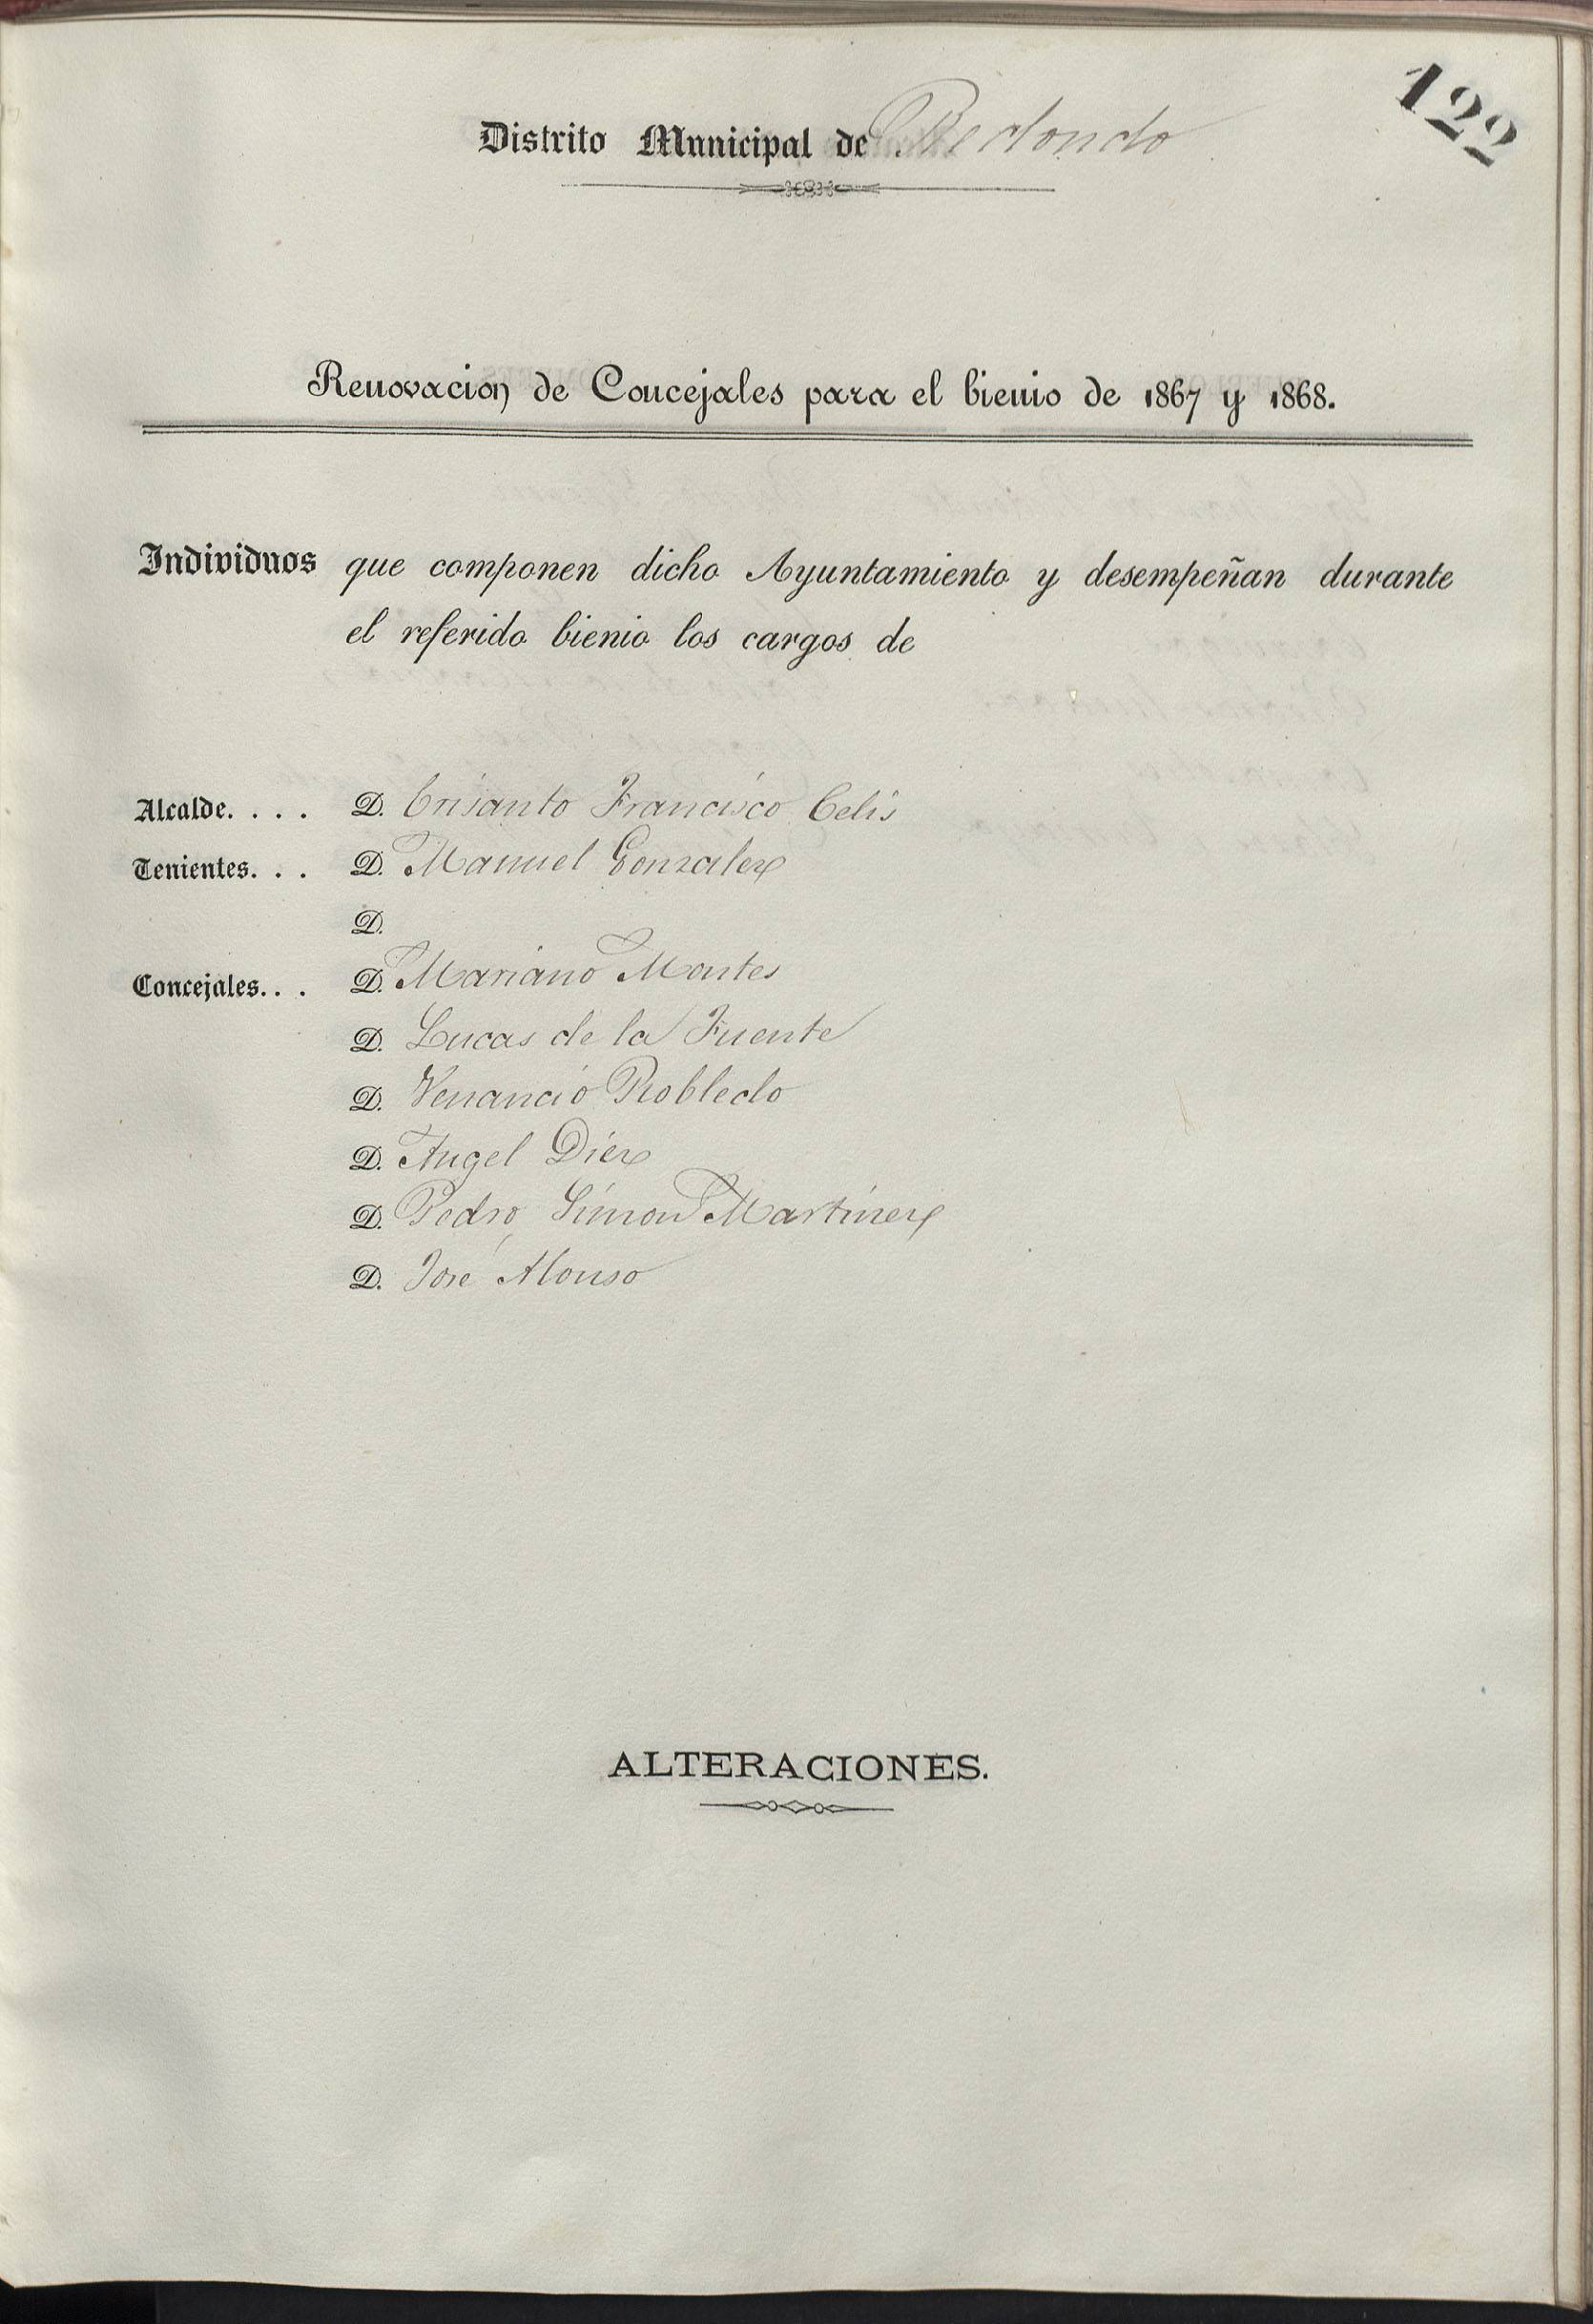 122
Distrito Municipal de Redondo
Renovacion de Concejales para el bienio de 1867 y 1868.
Individuos que componen dicho Ayuntamiento y desempeñan durante
el referido bienio los cargos de
Alcalde. . . . D. Crisanto Francisco Celis
Tenientes. . . D. Manuel Gonzalez
D.
Concejales. . . D. Mariano Montes
D. Lucas de la Fuente
D. Venancio Robledo
D. Angel Diez
D. Pedro Simon Martinez
D. José Alonso
ALTERACIONES.